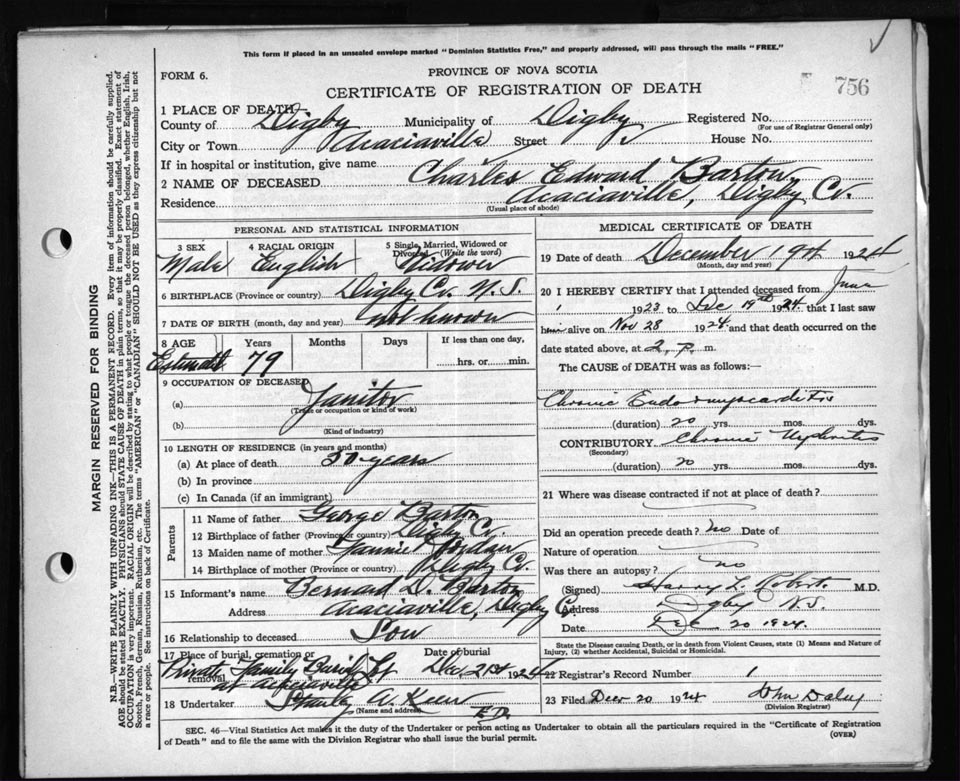 This form if placed in an unsealed envelope marked "Dominion Statistics Free," and properly addressed, will pass through the mails "FREE."
FORM 6.
PROVINCE OF NOVA SCOTIA
756
CERTIFICATE OF REGISTRATION OF DEATH
1 PLACE OF DEATH
County of Digby Municipality of Digby Registered No.
(For use of Registrar General only)
City or Town Acaciaville Street House No.
If in hospital or institution, give name
2 NAME OF DECEASED Charles Edward Barton
Residence Acaciaville, Digby Co.
(Usual place of abode)
PERSONAL AND STATISTICAL INFORMATION
3 SEX 4 RACIAL ORIGIN 5 Single, Married, Widowed or Divorced (Write the word)
Male English Widower
6 BIRTHPLACE (Province or country) Digby Co. N.S.
7 DATE OF BIRTH (month, day and year) not known
8 AGE Years Months Days If less than one day,
79 hrs. or min.
9 OCCUPATION OF DECEASED
(a) Janitor
(Trade or occupation or kind of work)
(b)
(Kind of industry)
10 LENGTH OF RESIDENCE (in years and months)
(a) At place of death 50 years
(b) In province
(c) In Canada (if an immigrant)
Parents
11 Name of father George Barton
12 Birthplace of father (Province or country) Digby Co.
13 Maiden name of mother
14 Birthplace of mother (Province or country) Digby Co.
15 Informant's name Bernard D. Barton
Address Acaciaville, Digby Co.
16 Relationship to deceased Son
17 Place of burial, cremation or removal Date of burial
Private Family Burial Lot Dec 21st 1924
at Acaciaville
18 Undertaker Stanley A. Keen
(Name and address)
MEDICAL CERTIFICATE OF DEATH
19 Date of death December 19th 1924
(Month, day and year)
20 I HEREBY CERTIFY that I attended deceased from June
1 1923 to Dec 19th 1924 that I last saw
him alive on Nov 28 1924 and that death occurred on
date stated above, at 2 p. m.
The CAUSE of DEATH was as follows:—
Chronic Endo-myocarditis
(duration) 20 yrs. mos. dys.
CONTRIBUTORY Chronic Nephritis
(Secondary)
(duration) 20 yrs. mos. dys.
21 Where was disease contracted if not at place of death?
Did an operation precede death? no Date of
Nature of operation
Was there an autopsy? no
(Signed) Harry L. Robert M.D.
Address Digby N.S.
Date Dec 20 1924
State the disease causing Death, or in death from Violent Causes, state (1) Means and Nature of
Injury, (2) whether Accidental, Suicidal or Homicidal.
22 Registrar's Record Number 1
23 Filed Decr 20 1924 John Daley
(Division Registrar)
SEC. 46—Vital Statistics Act makes it the duty of the Undertaker or person acting as Undertaker to obtain all the particulars required in the "Certificate of Registration
of Death" and to file the same with the Division Registrar who shall issue the burial permit.
(OVER)
MARGIN RESERVED FOR BINDING
N.B.—WRITE PLAINLY WITH UNFADING INK—THIS IS A PERMANENT RECORD. Every item of information should be carefully supplied.
AGE should be stated EXACTLY. PHYSICIANS should STATE CAUSE OF DEATH in plain terms, so that it may be properly classified. Exact statement of
OCCUPATION is very important. RACIAL ORIGIN will be described by stating to what people or tongue the deceased person belonged, whether English, Irish,
Scotch, French, German, Russian, Ruthenian, etc. The terms "AMERICAN" or "CANADIAN" SHOULD NOT BE USED as they express citizenship but not
a race or people. See instructions on back of Certificate.